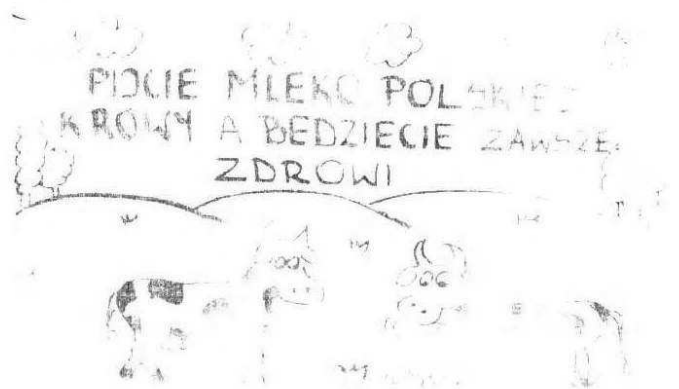 PIJCIE MLEKO POLSKIEJ
KROWY A BĘDZIECIE ZAWSZE
ZDROWI